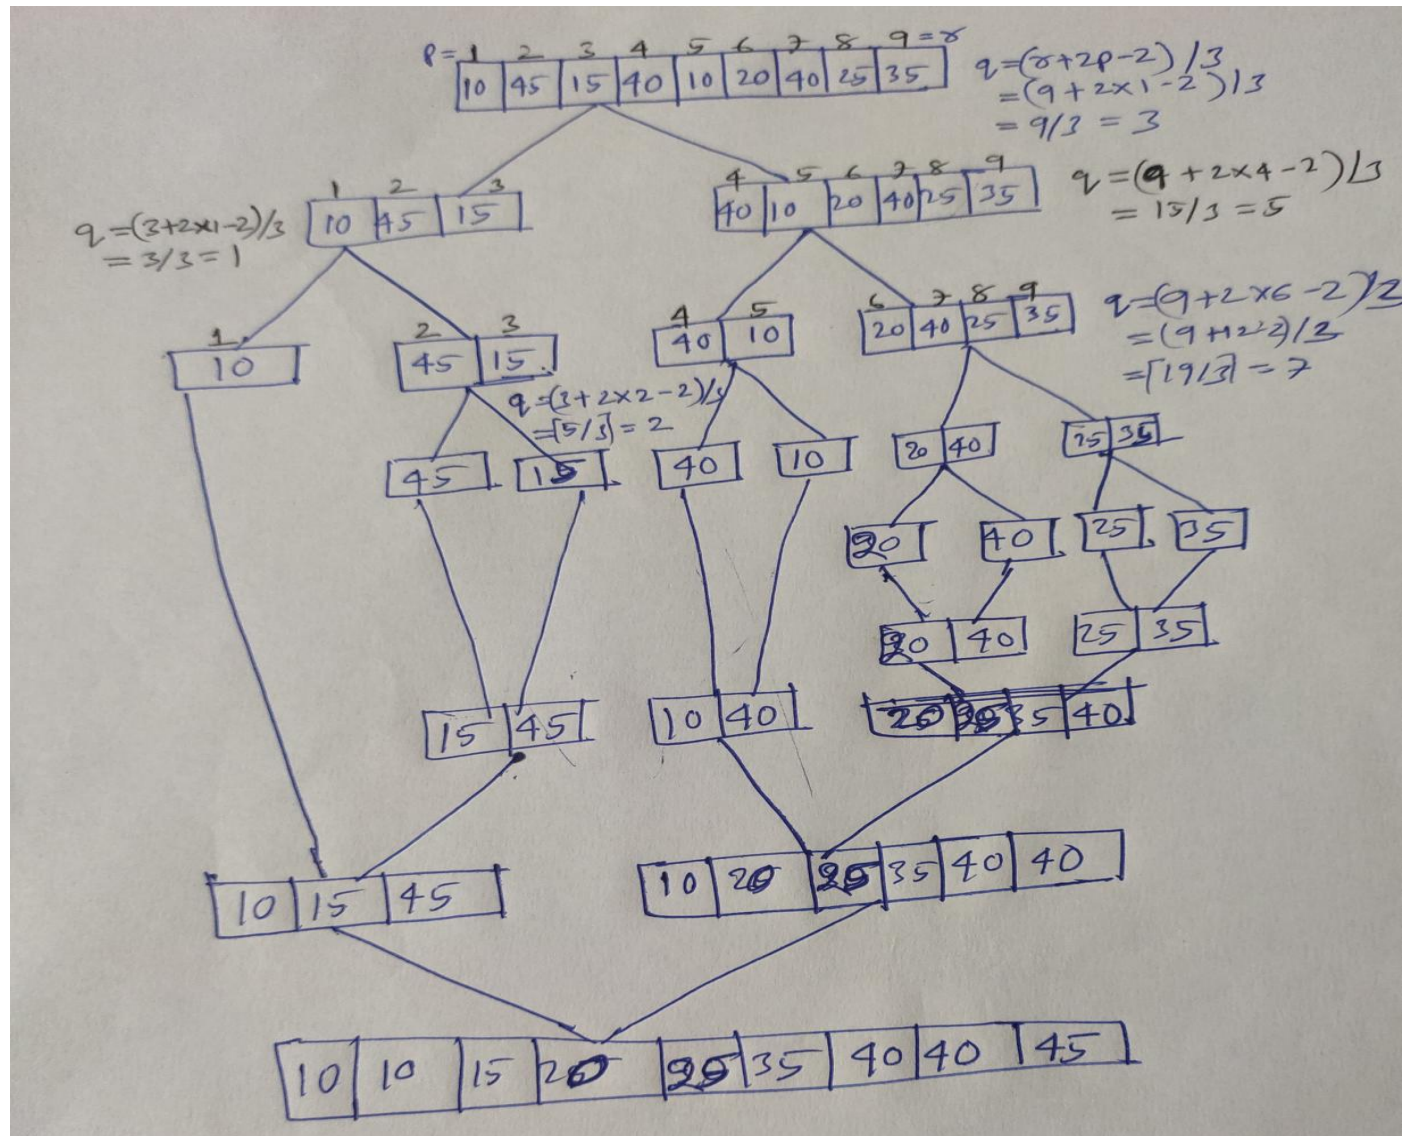 p=1 2 3 4 5 6 7 8 9=r
10 45 15 40 10 20 40 25 35
q=(r+2p-2)/3
=(9+2×1-2)/3
=9/3=3
1 2 3
10 45 15
q=(3+2×1-2)/3
=3/3=1
4 5 6 7 8 9
40 10 20 40 25 35
q=(9+2×4-2)/3
=15/3=5
1
10
2 3
45 15
q=(3+2×2-2)/3
=⌈5/3⌉=2
4 5
40 10
6 7 8 9
20 40 25 35
q=(9+2×6-2)/3
=(9+12-2)/3
=⌈19/3⌉=7
45 15 40 10
20 40 25 35
20 40 25 35
20 40 25 35
15 45 10 40
20 25 35 40
10 15 45
10 20 25 35 40 40
10 10 15 20 25 35 40 40 45